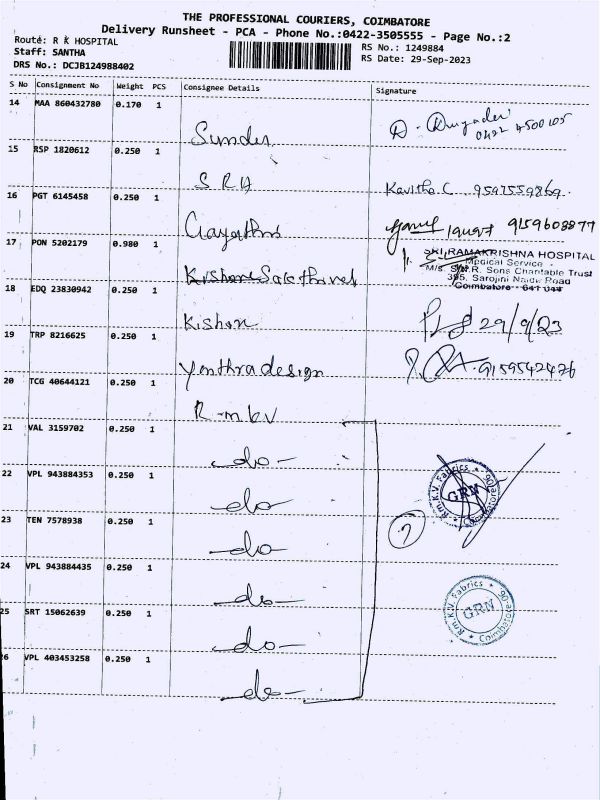 THE PROFESSIONAL COURIERS, COIMBATORE
Delivery Runsheet - PCA - Phone No.:0422-3505555 - Page No.:2
Route: R K HOSPITAL
Staff: SANTHA
DRS No.: DCJB124988402
RS No.: 1249884
RS Date: 29-Sep-2023
S No Consignment No Weight PCS Consignee Details Signature
14 MAA 860432780 0.170 1
Sunder
0422 4500105
15 RSP 1820612 0.250 1
SRH Kavitha.C 9597559869.
16 PGT 6145458 0.250 1
Gayathri 9159608877
17 PON 5202179 0.980 1
SRI RAMAKRISHNA HOSPITAL
Medical Service -
M/s. S.N.R. Sons Charitable Trust
395, Sarojini Naidu Road
Coimbatore - 641 044
18 EDQ 23830942 0.250 1
Kishon 29/9/23
19 TRP 8216625 0.250 1
Yanthra design 9159542476
20 TCG 40644121 0.250 1
R-mkv
21 VAL 3159702 0.250 1
-do-
22 VPL 943884353 0.250 1
-do-
Rm.K.V. Fabrics * Coimbatore-90. *
GRN
23 TEN 7578938 0.250 1
-do-
7
24 VPL 943884435 0.250 1
-do-
25 SRT 15062639 0.250 1
-do-
Rm.K.V. Fabrics * Coimbatore-90. *
GRN
26 VPL 403453258 0.250 1
-do-